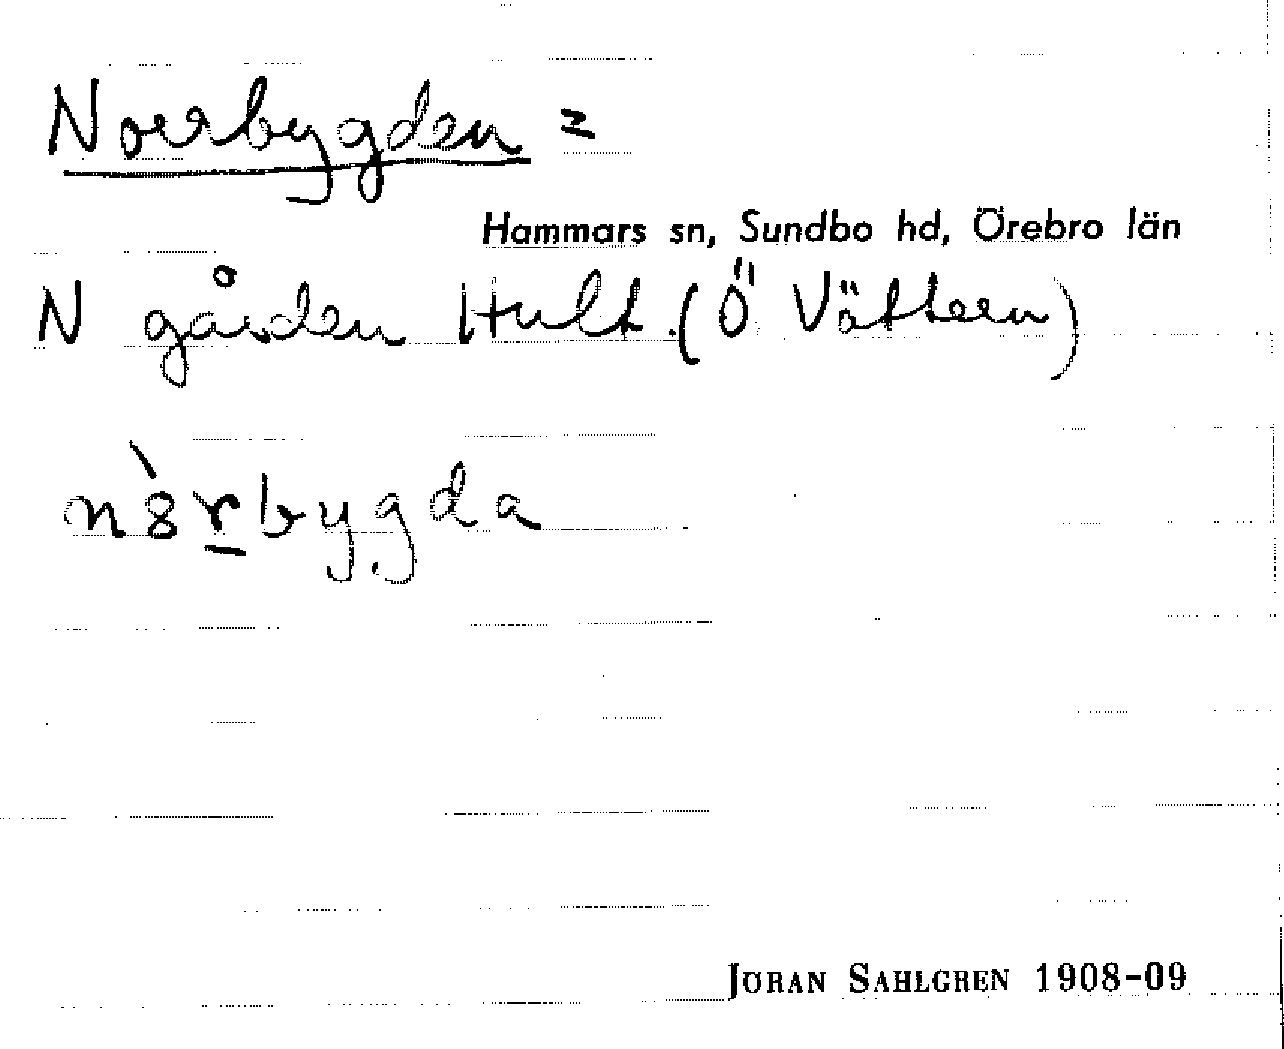 Norrbygden =
Hammars sn, Sundbo hd, Örebro län
N gården Hult (Ö Vättern)
n8̀r̲bygda
JÖRAN SAHLGREN 1908-09